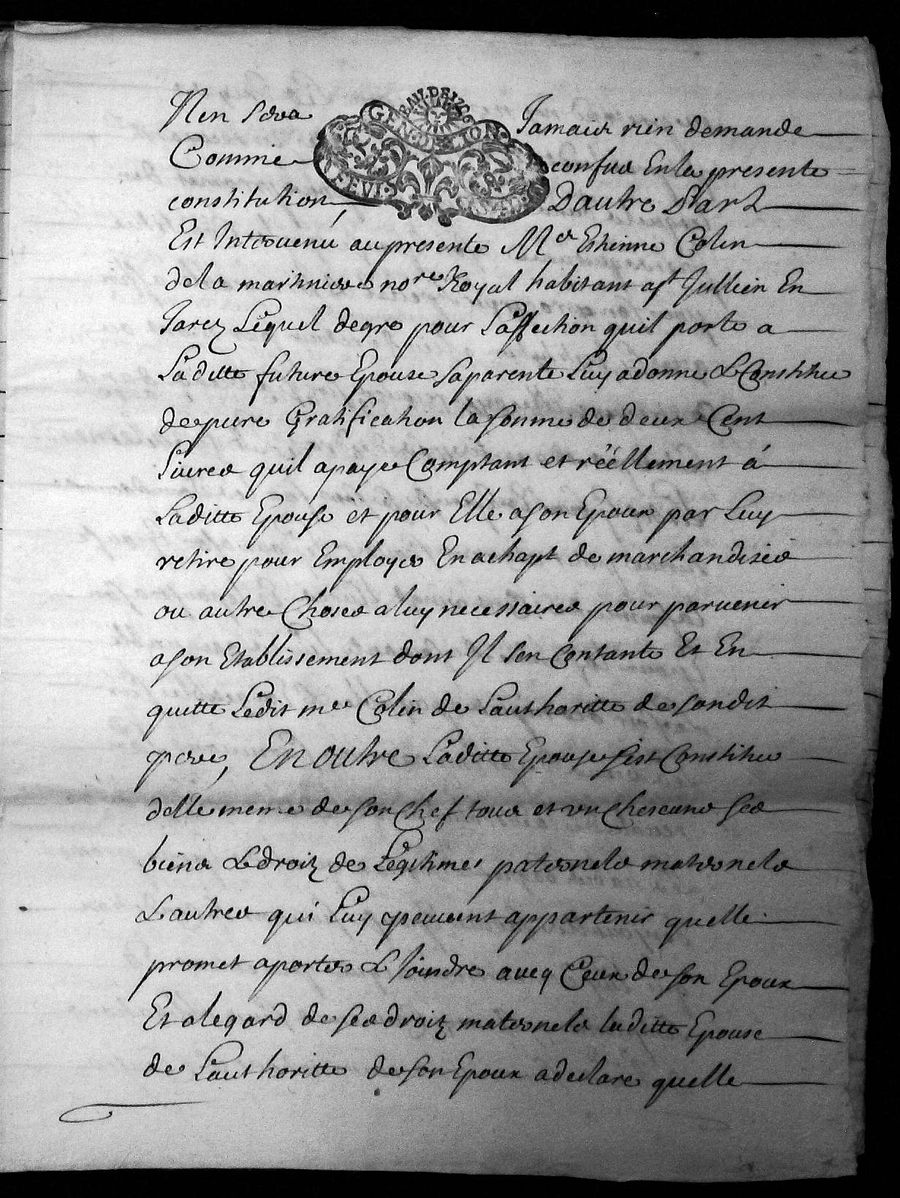 Nen sera Jamais rien demande
Comme confus En la presente
constitution, Dautre Part
Est Intervenu au presente Mre Estienne Colin
de la martiniere nore Royal habitant a st Jullien En
Jarez Lequel de gre pour Laffection quil porte a
Laditte future Epouse sa parente Luy a donne & Constitue
de pure Gratification la somme de deux Cent
Livres quil a paye Comptant et réellement á
Laditte Epouse et pour Elle a son Epoux par Luy
retire pour Employer En achapt de marchandises
ou autre Choses a luy necessaires pour parvenir
a son Etablissement dont Il sen contante Et En
quitte Ledit mre Colin de Lauthoritte de son dit
pere, En outre Laditte Epouse sest Constitue
delle meme de son Chef tous et un chescuns ses
biens & droitz de Legitimes paternels maternels
& autres qui Luy peuvent appartenir quelle
promet aporter & Joindre avecq Ceux de son Epoux
Et a legard de ses droitz maternels laditte Epouse
de Lauthoritte de son Epoux a declare quelle